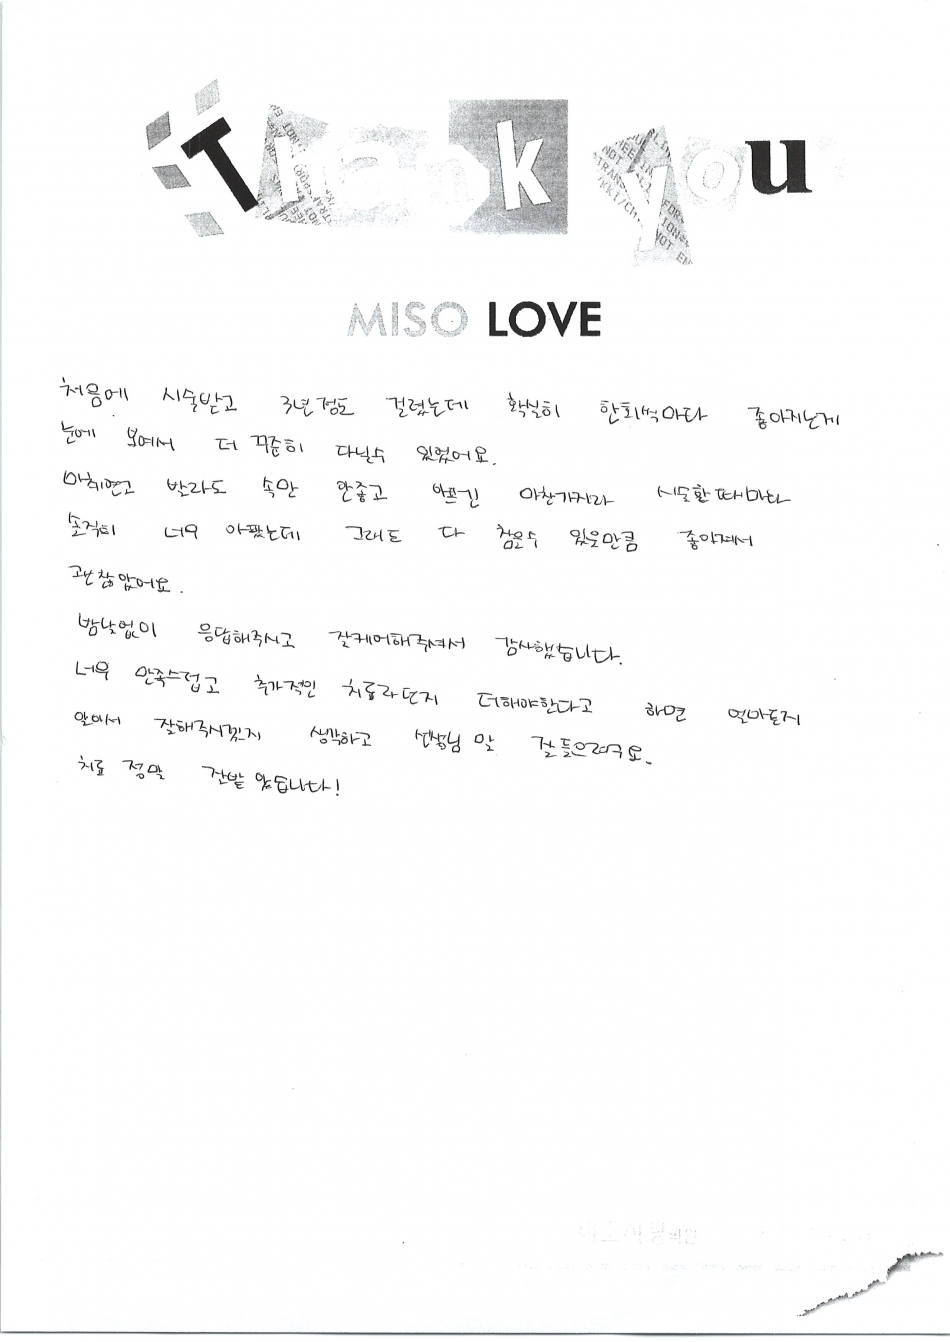 Thank you
MISO LOVE
처음에 시술받고 3년정도 걸렸는데 확실히 한회씩마다 좋아지는게
눈에 보여서 더 꾸준히 다닐수 있었어요.
마취연고 발라도 속만 안좋고 아프긴 마찬가지라 시술할때마다
솔직히 너무 아팠는데 그래도 다 참을수 있을만큼 좋아져서
괜찮았어요.
밤낮없이 응답해주시고 잘케어해주셔서 감사했습니다.
너무 만족스럽고 추가적인 치료라던지 더해야한다고 하면 얼마든지
알아서 잘해주시겠지 생각하고 선생님 말 잘들으려구요.
치료 정말 잘받았습니다!